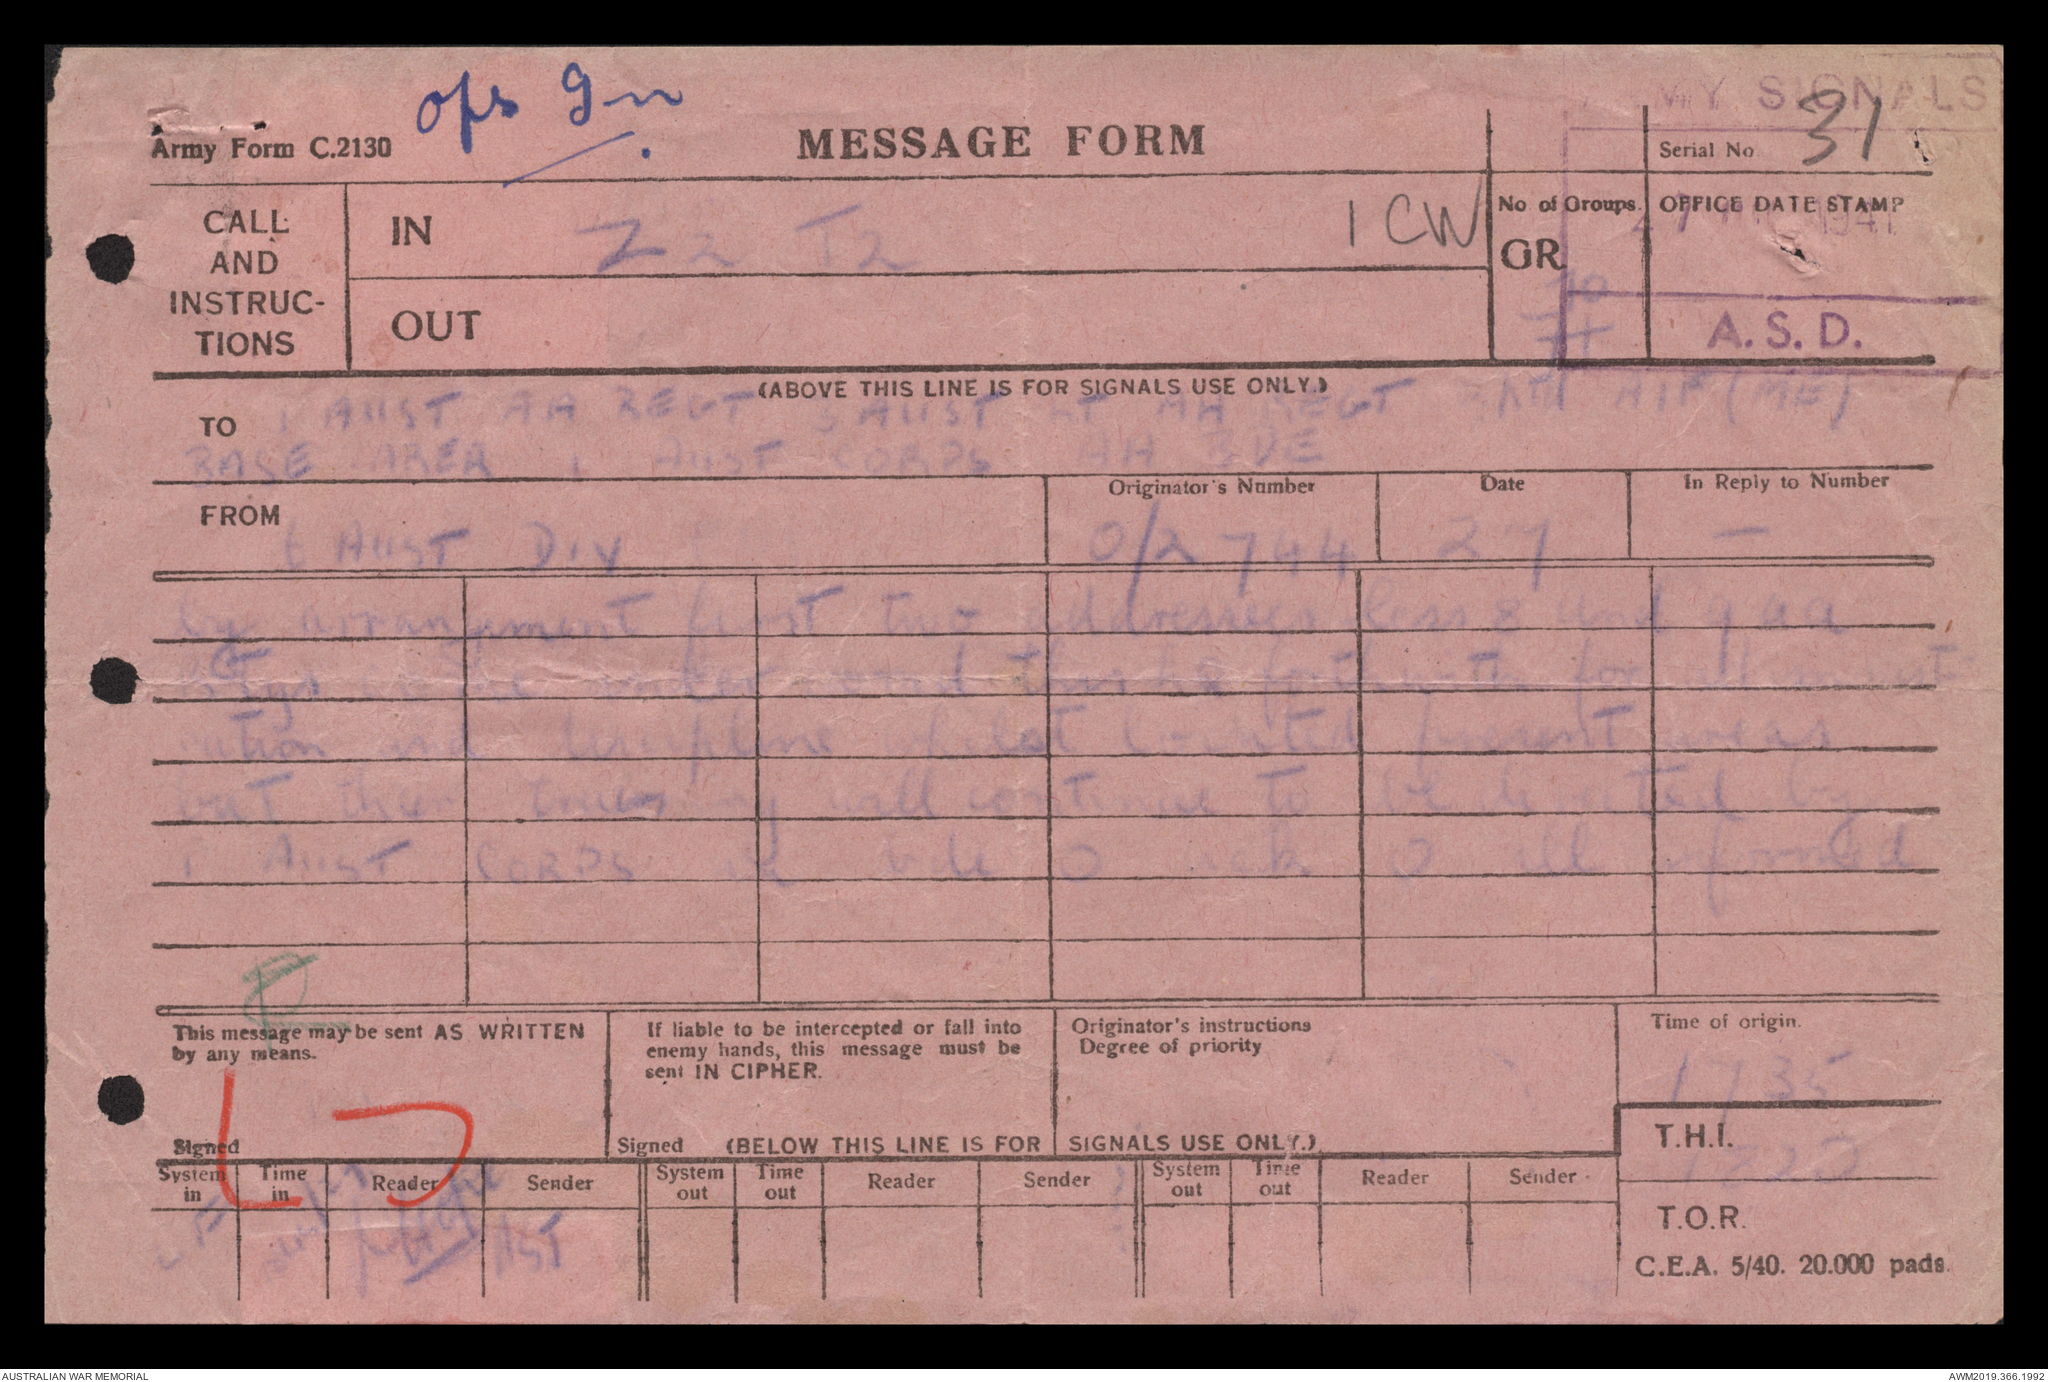 ops 9
ARMY SIGNALS
Army Form C.2130
MESSAGE FORM
Serial No 31
CALL
AND
INSTRUC-
TIONS
IN
Z2 T2
1 CW
No of Groups.
GR
70
OFFICE DATE STAMP
27 1941
OUT
A. S. D.
(ABOVE THIS LINE IS FOR SIGNALS USE ONLY.)
TO
1 AUST AA REGT 3 AUST LT AA REGT AIF (ME)
BASE AREA 1 AUST CORPS AA BDE
FROM
Originator's Number
Date
In Reply to Number
AUST DIV
O/2744
27
—
by arrangement first two addressees less 8 and 9 aa
btys under forthwith for
ration and discipline whilst located present areas
but their training will continue to be directed by
1 AUST CORPS aa bde O ack O all informed
This message may be sent AS WRITTEN
by any means.
Signed
If liable to be intercepted or fall into
enemy hands, this message must be
sent IN CIPHER.
Signed
Originator's instructions
Degree of priority
Time of origin.
1135
(BELOW THIS LINE IS FOR SIGNALS USE ONLY.)
T.H.I.
System in
Time in
Reader
Sender
System out
Time out
Reader
Sender
System out
Time out
Reader
Sender
T.O.R.
C.E.A. 5/40. 20.000 pads.
AUSTRALIAN WAR MEMORIAL
AWM2019.366.1992